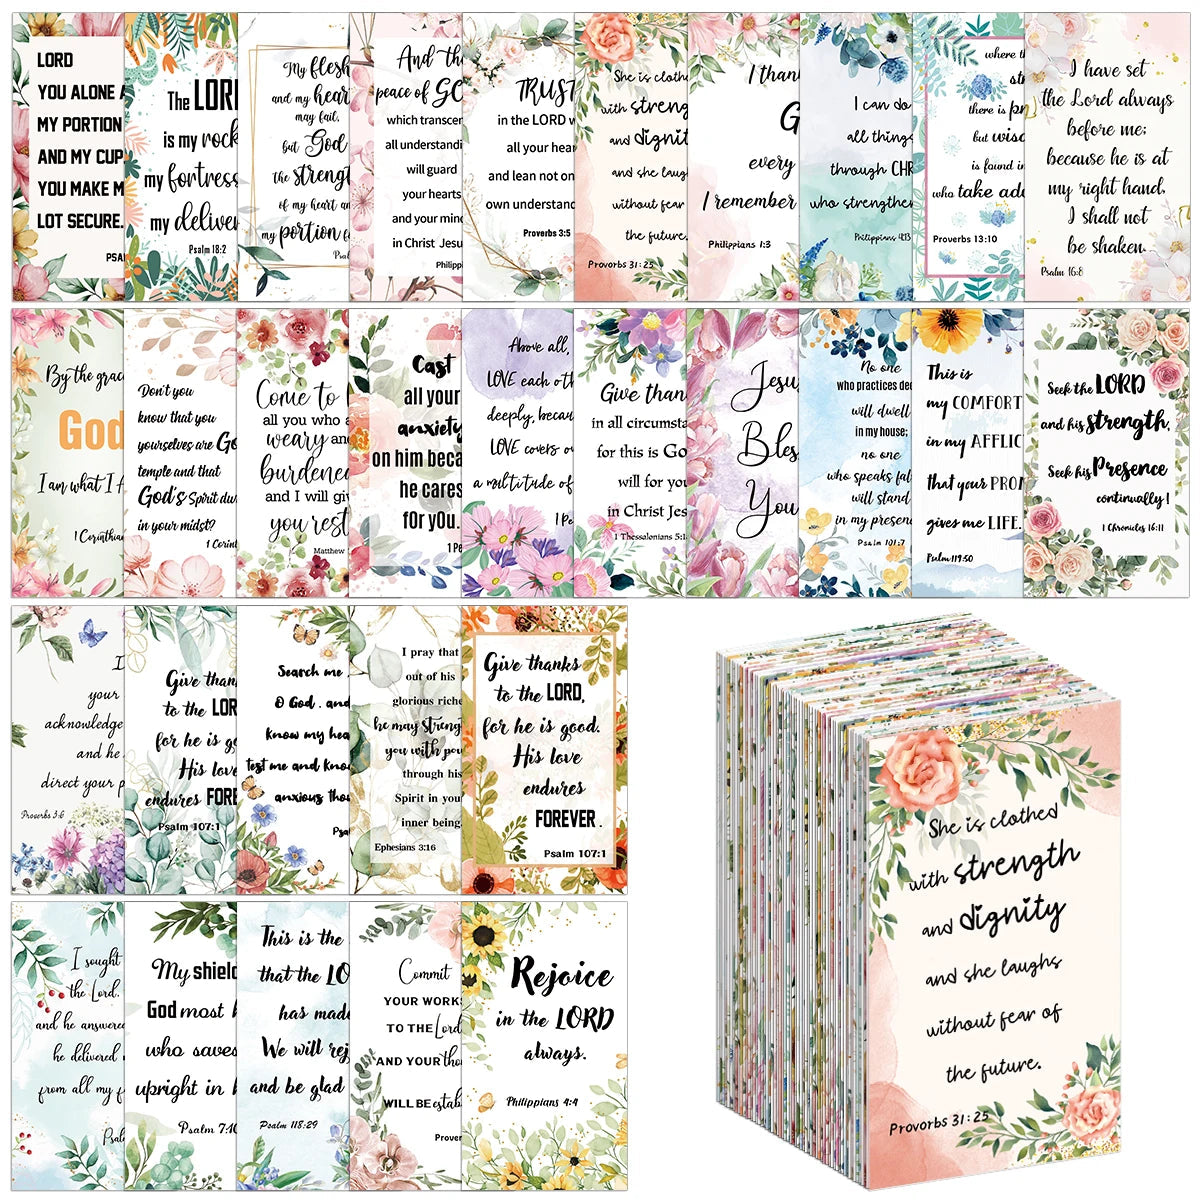 LORD
YOU ALONE
MY PORTION
AND MY CUP
YOU MAKE M
LOT SECURE.
PSA
The LORD
is my rock
my fortress
my deliver
Psalm 18:2
My flesh
and my hear
may fail,
but God
the strengt
of my heart an
my portion
Psal
And the
peace of GO
which transcen
all understandi
will guard
your hearts
and your mind
in Christ Jesu
Philippi
TRUST
in the LORD w
all your hear
and lean not on
own understand
Proverbs 3:5
She is cloth
with streng
and dignit
and she laug
without fear
the future.
Proverbs 31:25
I than
G
every
I remember
Philippians 1:3
I can do
all things
through CHR
who strengthen
Philippians 4:13
where th
st
there is pr
but wisd
is found in
who take adv
Proverbs 13:10
I have set
the Lord always
before me;
because he is at
my right hand,
I shall not
be shaken.
Psalm 16:8
By the grac
God
I am what I A
1 Corinthia
Don't you
know that you
yourselves are Go
temple and that
God's Spirit dw
in your midst?
1 Corint
Come to
all you who a
weary and
burdene
and I will giv
you rest
Matthew
Cast
all your
anxiety
on him beca
he cares
for you.
1 Pe
Above all,
LOVE each oth
deeply, becau
LOVE covers o
a multitude of
1 Pe
Give than
in all circumsta
for this is Go
will for yo
in Christ Jes
1 Thessalonians 5:1
Jesu
Bles
You
No one
who practices dec
will dwell
in my house;
no one
who speaks fal
will stand
in my presenc
Psalm 101:7
This is
my COMFORT
in my AFFLIC
that your PROM
gives me LIFE.
Psalm 119:50
Seek the LORD
and his strength,
Seek his Presence
continually!
1 Chronicles 16:11
I
your
acknowledge
and he
direct your p
Proverbs 3:6
Give than
to the LOR
for he is go
His love
endures FORE
Psalm 107:1
Search me
O God, and
know my hea
test me and know
anxious thou
Psa
I pray that
out of his
glorious riche
he may streng
you with pow
through his
Spirit in you
inner being
Ephesians 3:16
Give thanks
to the LORD,
for he is good.
His love
endures
FOREVER.
Psalm 107:1
I sought
the Lord,
and he answere
he delivered
from all my f
Psal
My shield
God most h
who saves
upright in h
Psalm 7:10
This is the
that the LO
has made
We will rej
and be glad
Psalm 118:29
Commit
YOUR WORKS
TO THE Lord
AND YOUR tho
WILL BE estab
Prover
Rejoice
in the LORD
always.
Philippians 4:4
She is clothed
with strength
and dignity
and she laughs
without fear of
the future.
Proverbs 31:25